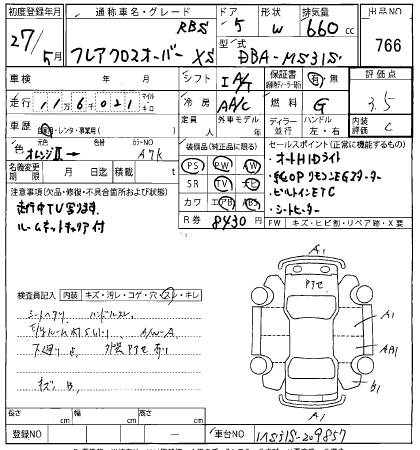 初度登録年月 通称車名・グレード RBS ドア 形状 排気量 出品NO
27年 5月 フレアクロスオーバー XS 5 W 660cc 766
型式 DBA-MS31S
車検 年 月 シフト IA/T 保証書 有・無 評価点
走行 11万6021 マイル キロ 冷房 AAC 燃料 G 3.5
定員 人 外車モデル 年 ディーラー 並行 ハンドル 左・右 内装評価 C
車歴 自家用・レンタ・事業用( )
色 元色 オレンジⅡ→ 色替 カラーNO A7K
名義変更期限 月 日迄 積載 t
装備品(純正品に限る)
PS PW AW
SR TV ナビ
カワ エアB ABS
R券 8430円
セールスポイント(正常に機能するもの)
・オートHIDライト
・純OPリモコンEGスターター
・ビルトインETC
・シートヒーター
FW キズ・ヒビ割・リペア跡・X要
注意事項(欠品・修復・不具合箇所および状態)
走行中TV写ります
ルームキットキャリア付
検査員記入 内装 キズ・汚レ・コゲ・穴・スレ・キレ
シートヘタリ ハンドルスレ
A/W-A
下廻りサビ 外装アセ有り
キズ B
A1
アセ
A1
AB1
B1
A1
長さ cm 幅 cm 高さ cm
登録NO 車台NO MS31S-209857